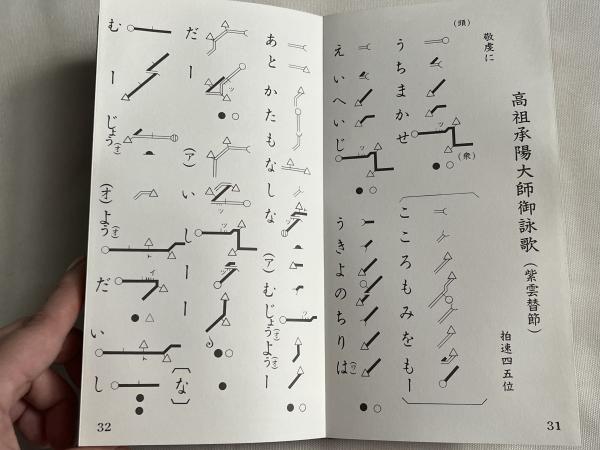 高祖承陽大師御詠歌(紫雲替節)
拍速四五位
敬虔に
(頭)
うちまかせ
(衆)
こころもみをもー
えいへいじ
うきよのちりは(ワ)
31
あとかたもなしな(ア)むじょう(オ)よう(オ)ー
だー(ア)いしーー(な)
むーじょう(オ)(オ)よう(オ)だいし
32